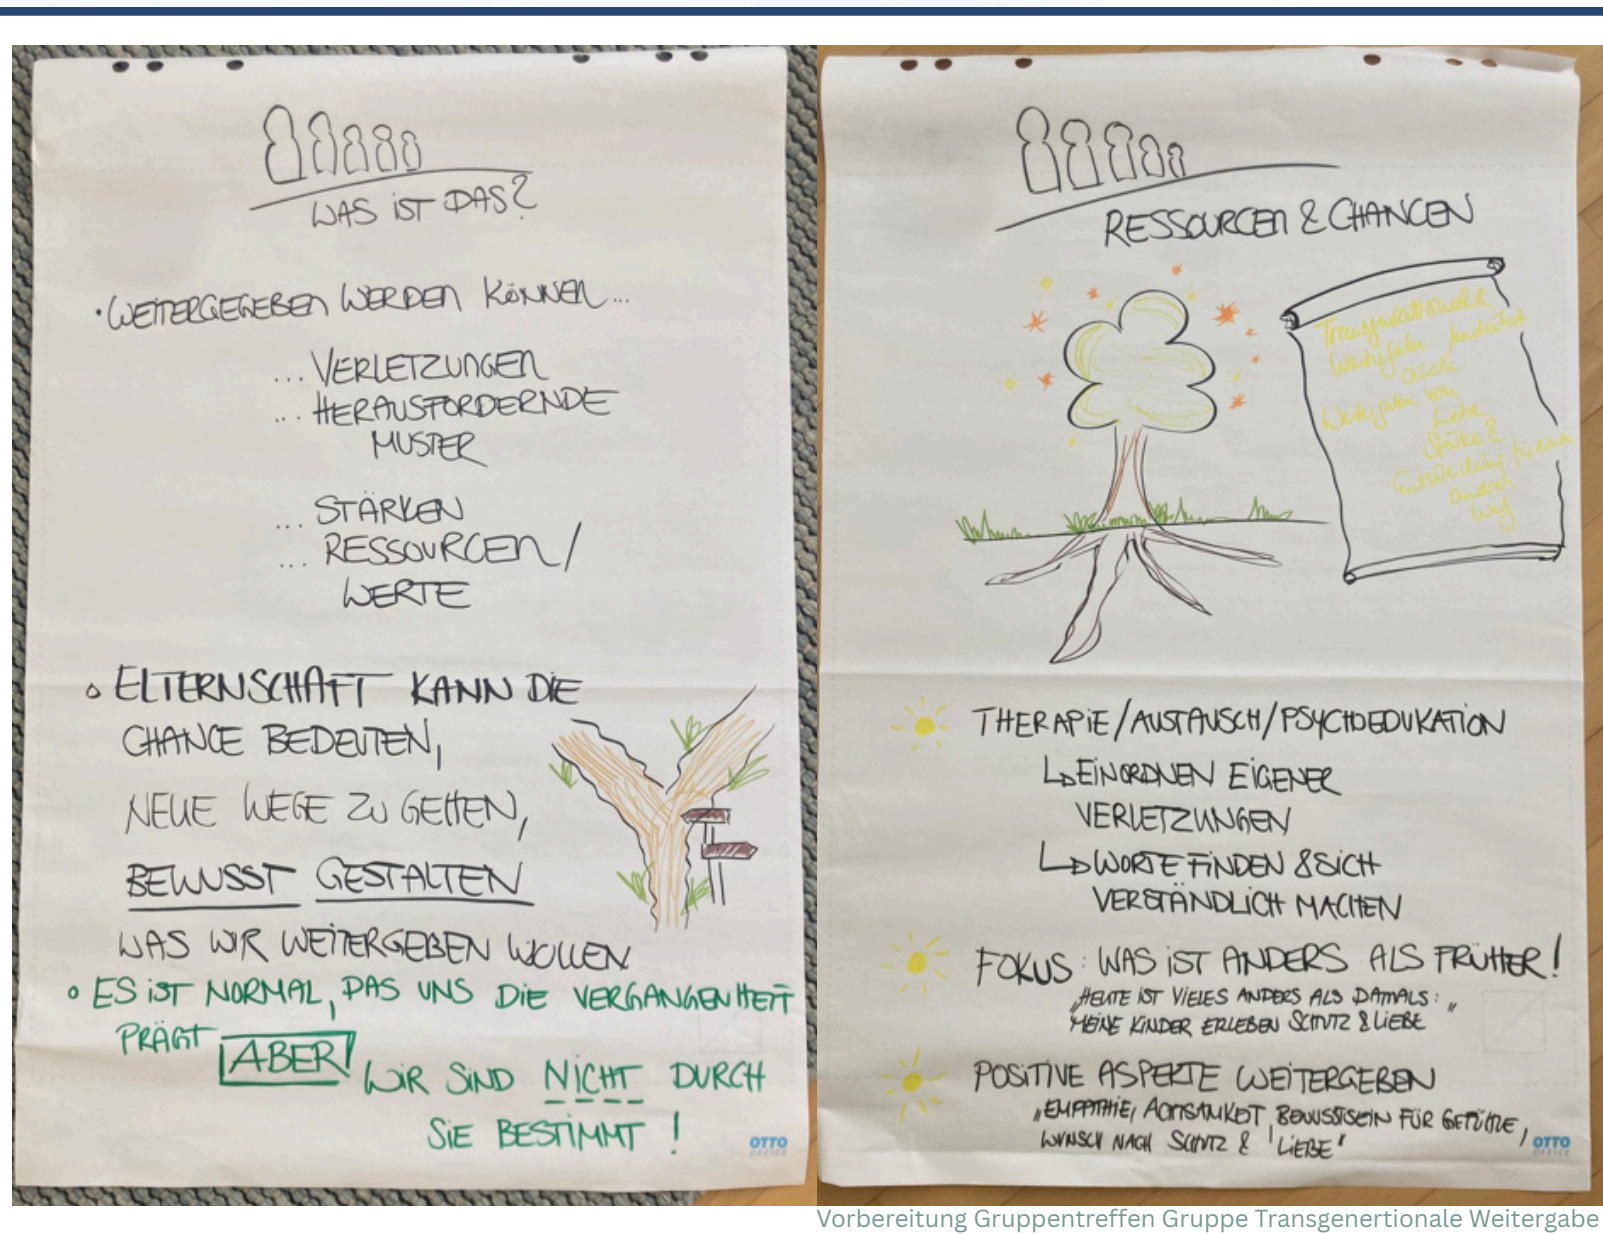 WAS IST DAS?
• WEITERGEGEBEN WERDEN KÖNNEN...
... VERLETZUNGEN
... HERAUSFORDERNDE
MUSTER
... STÄRKEN
... RESSOURCEN/
WERTE
• ELTERNSCHAFT KANN DIE
CHANCE BEDEUTEN,
NEUE WEGE ZU GEHEN,
BEWUSST GESTALTEN
WAS WIR WEITERGEBEN WOLLEN
• ES IST NORMAL, DAS UNS DIE VERGANGENHEIT
PRÄGT ABER WIR SIND NICHT DURCH
SIE BESTIMMT!
OTTO
OFFICE
RESSOURCEN & CHANCEN
Transgenerationale
Weitergabe bedeutet
auch
Weitergabe von
Liebe
Stärke &
Entscheidung für einen
anderen
Weg
THERAPIE/AUSTAUSCH/PSYCHOEDUKATION
↳ EINORDNEN EIGENER
VERLETZUNGEN
↳ WORTE FINDEN & SICH
VERSTÄNDLICH MACHEN
FOKUS: WAS IST ANDERS ALS FRÜHER!
„HEUTE IST VIELES ANDERS ALS DAMALS:
MEINE KINDER ERLEBEN SCHUTZ & LIEBE"
POSITIVE ASPEKTE WEITERGEBEN
„EMPATHIE, ACHTSAMKEIT, BEWUSSTSEIN FÜR GEFÜHLE,
WUNSCH NACH SCHUTZ & LIEBE"
OTTO
OFFICE
Vorbereitung Gruppentreffen Gruppe Transgenertionale Weitergabe